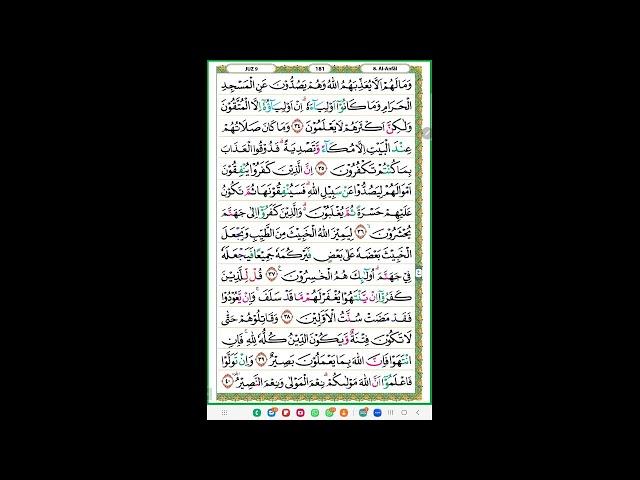 JUZ 9 181 8. Al-Anfāl
وَمَا لَهُمْ اَلَّا يُعَذِّبَهُمُ اللّٰهُ وَهُمْ يَصُدُّوْنَ عَنِ الْمَسْجِدِ
الْحَرَامِ وَمَا كَانُوْٓا اَوْلِيَاۤءَهٗۗ اِنْ اَوْلِيَاۤؤُهٗٓ اِلَّا الْمُتَّقُوْنَ
وَلٰكِنَّ اَكْثَرَهُمْ لَا يَعْلَمُوْنَ ٣٤ وَمَا كَانَ صَلَاتُهُمْ
عِنْدَ الْبَيْتِ اِلَّا مُكَاۤءً وَّتَصْدِيَةًۗ فَذُوْقُوا الْعَذَابَ
بِمَا كُنْتُمْ تَكْفُرُوْنَ ٣٥ اِنَّ الَّذِيْنَ كَفَرُوْا يُنْفِقُوْنَ
اَمْوَالَهُمْ لِيَصُدُّوْا عَنْ سَبِيْلِ اللّٰهِۗ فَسَيُنْفِقُوْنَهَا ثُمَّ تَكُوْنُ
عَلَيْهِمْ حَسْرَةً ثُمَّ يُغْلَبُوْنَۗ وَالَّذِيْنَ كَفَرُوْٓا اِلٰى جَهَنَّمَ
يُحْشَرُوْنَۙ ٣٦ لِيَمِيْزَ اللّٰهُ الْخَبِيْثَ مِنَ الطَّيِّبِ وَيَجْعَلَ
الْخَبِيْثَ بَعْضَهٗ عَلٰى بَعْضٍ فَيَرْكُمَهٗ جَمِيْعًا فَيَجْعَلَهٗ
فِيْ جَهَنَّمَۗ اُولٰۤىِٕكَ هُمُ الْخٰسِرُوْنَ ٣٧ قُلْ لِّلَّذِيْنَ
كَفَرُوْٓا اِنْ يَّنْتَهُوْا يُغْفَرْ لَهُمْ مَّا قَدْ سَلَفَۚ وَاِنْ يَّعُوْدُوْا
فَقَدْ مَضَتْ سُنَّتُ الْاَوَّلِيْنَ ٣٨ وَقَاتِلُوْهُمْ حَتّٰى
لَا تَكُوْنَ فِتْنَةٌ وَّيَكُوْنَ الدِّيْنُ كُلُّهٗ لِلّٰهِۚ فَاِنِ
انْتَهَوْا فَاِنَّ اللّٰهَ بِمَا يَعْمَلُوْنَ بَصِيْرٌ ٣٩ وَاِنْ تَوَلَّوْا
فَاعْلَمُوْٓا اَنَّ اللّٰهَ مَوْلٰىكُمْۗ نِعْمَ الْمَوْلٰى وَنِعْمَ النَّصِيْرُ ٤٠